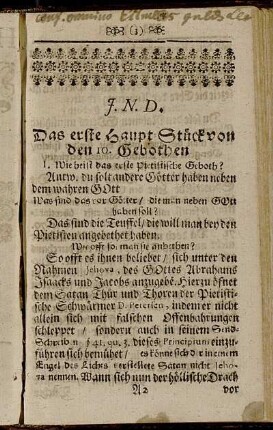 conf. omnino
(1)
J. N. D.
Das erste Haupt Stück von
den 10. Gebothen
1. Wie heist das erste Pietistische Geboth?
Antw. du solt andere Götter haben neben
dem wahren GOtt
Was sind das vor Götter / die man neben GOtt
haben soll?
Das sind die Teuffel / die will man bey den
Pietisten angebethet haben.
Wie offt so. man sie anbethen?
So offt es ihnen beliebet / sich unter den
Nahmen Jehova, des GOttes Abrahams
Isaacks und Jacobs anzugebē. Hierzu öfnet
dem Satan Thür und Thoren der Pietisti-
sche Schwärmer indem er nicht
allein sich mit falschen Offenbahrungen
schleppet / sondern auch in seinem Send-
Schreiben p 41. qu. 3. dieses Principium einzu-
führen sich bemühet / es könne sich der in einem
Engel des Lichts verstellete Satan nicht Jeho-
va nennen. Wann sich nun der höllische Drach
A2 vor